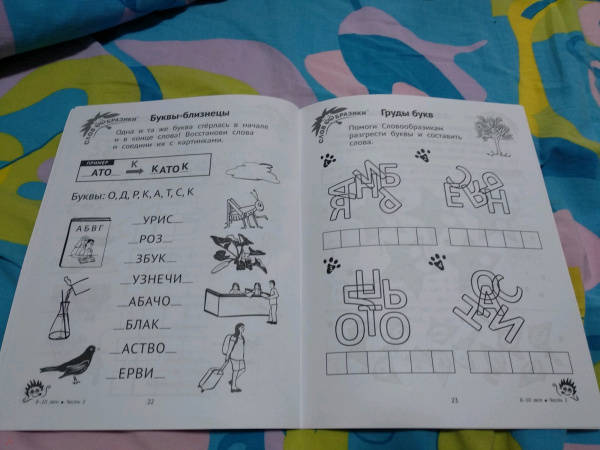 СЛОВООБРАЗИКИ
Буквы-близнецы
Одна и та же буква стёрлась в начале
и в конце слова! Восстанови слова
и соедини их с картинками.
ПРИМЕР
_АТО_ → КАТОК
К
Буквы: О, Д, Р, К, А, Т, С, К
АБВГ
__УРИС__
__РОЗ__
__ЗБУК__
__УЗНЕЧИ__
__АБАЧО__
__БЛАК__
__АСТВО__
__ЕРВИ__
22
СЛОВООБРАЗИКИ
Груды букв
Помоги Словообразикам
разгрести буквы и составить
слова.
23